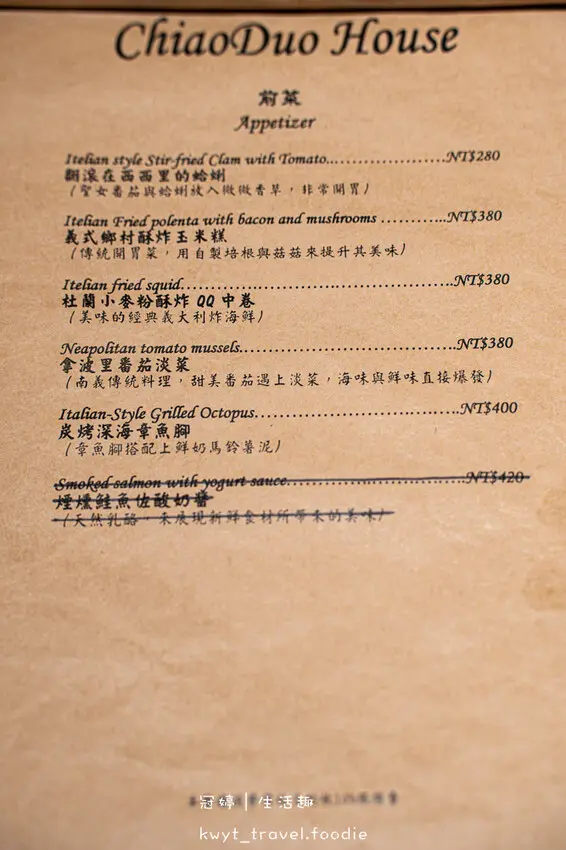 ChiaoDuo House
前菜
Appetizer
Italian style Stir-fried Clam with Tomato.....................NT$280
翻滾在西西里的蛤蜊
(聖女番茄與蛤蜊放入微微香草，非常開胃)
Italian Fried polenta with bacon and mushrooms .............NT$380
義式鄉村酥炸玉米糕
(傳統開胃菜，用自製培根與菇菇來提升其美味)
Italian fried squid................................................NT$380
杜蘭小麥粉酥炸 QQ 中卷
(美味的經典義大利炸海鮮)
Neapolitan tomato mussels.......................................NT$380
拿波里番茄淡菜
(南義傳統料理，甜美番茄遇上淡菜，海味與鮮味直接爆發)
Italian-Style Grilled Octopus....................................NT$400
炭烤深海章魚腳
(章魚腳搭配上鮮奶馬鈴薯泥)
Smoked salmon with yogurt sauce................................NT$420
煙燻鮭魚佐酸奶醬
(天然乳酪，來展現新鮮食材所帶來的美味)
冠婷｜生活趣
kwyt_travel.foodie